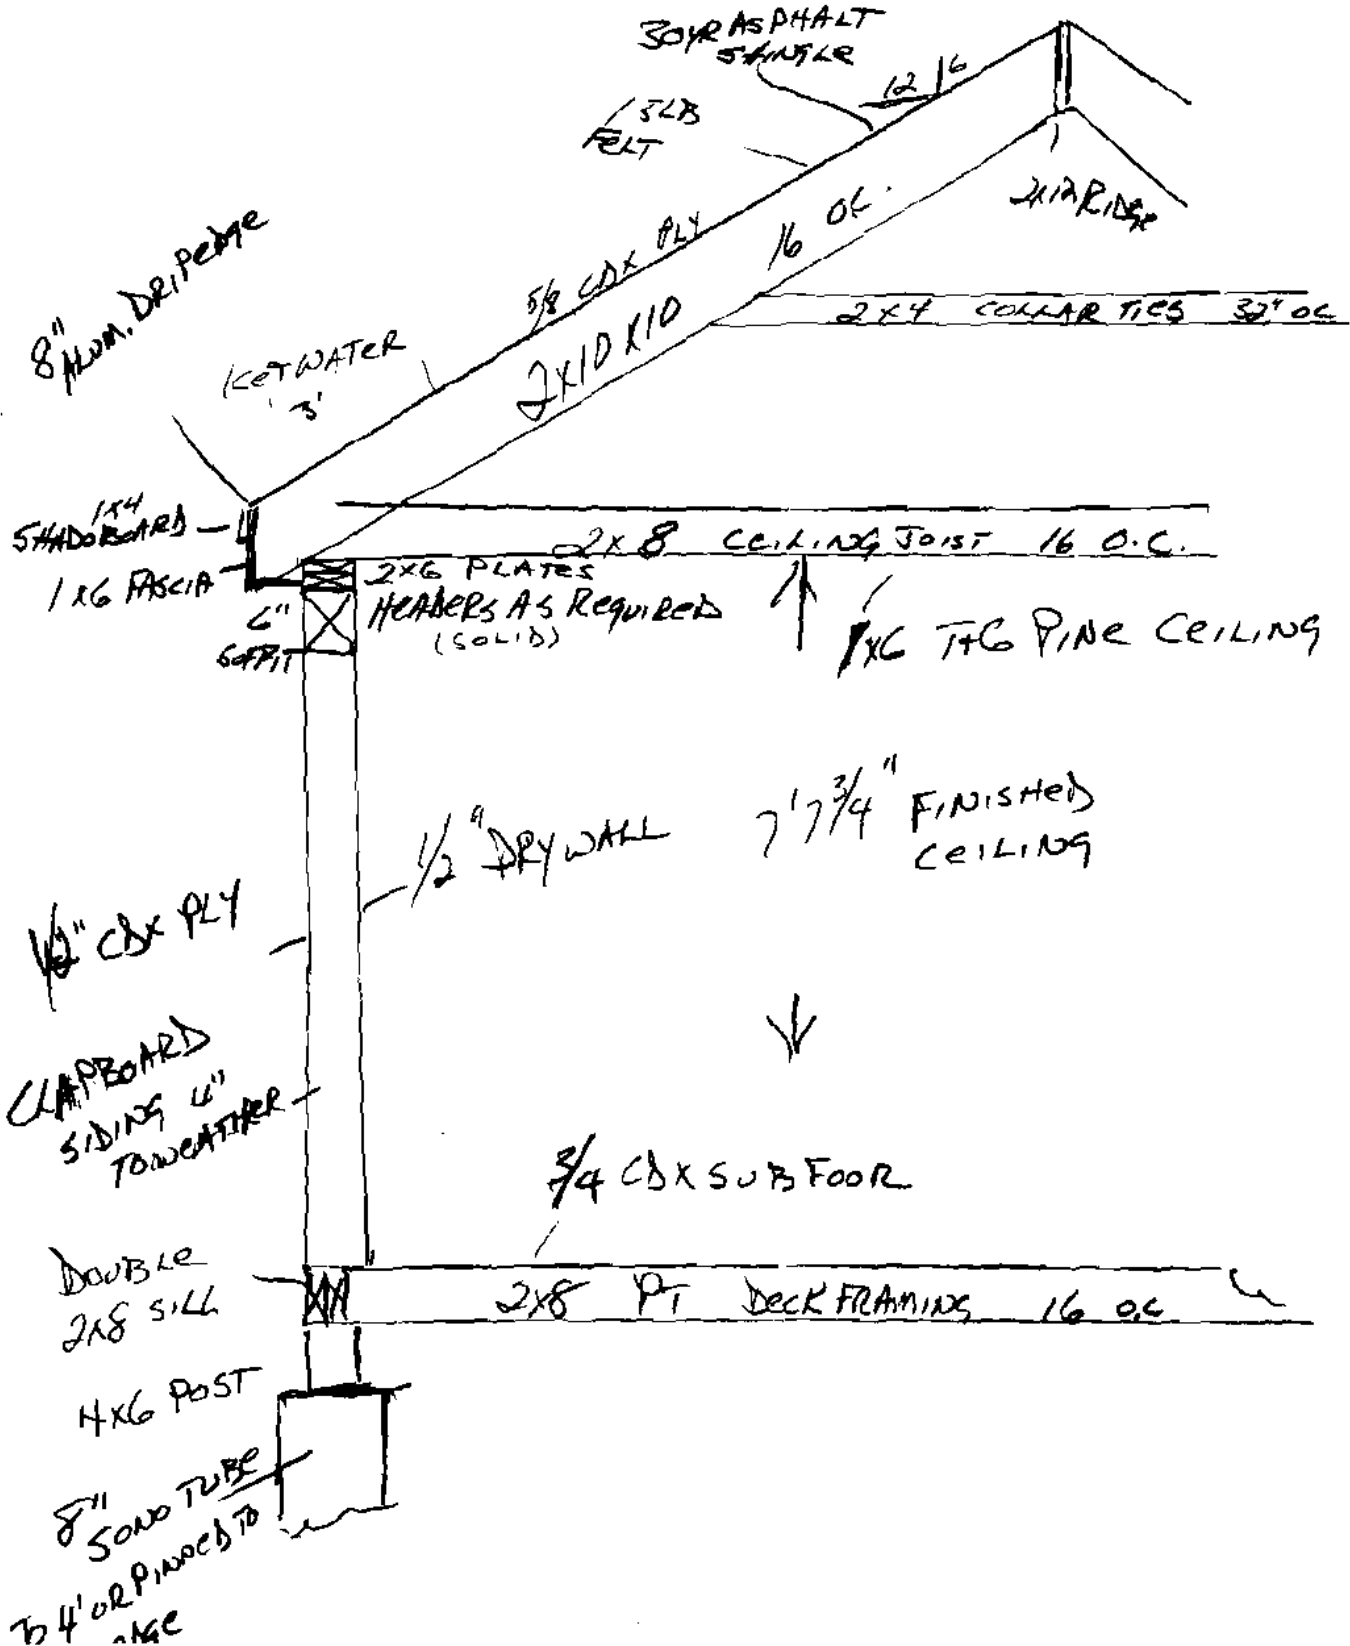 30YR ASPHALT
SHINGLE
12 6
15LB
FELT
2x12 RIDGE
5/8 CDX PLY
16 OC.
2X10X10
2x4 COLLAR TIES 32" OC
8"
ALUM. DRIPEDGE
ICE+WATER
3'
1x4
SHADOBOARD
1x6 FASCIA
6"
SOFFIT
2x8 CEILING JOIST 16 O.C.
2x6 PLATES
HEADERS AS REQUIRED
(SOLID)
1x6 T+G PINE CEILING
7'7 3/4" FINISHED
CEILING
1/2" DRYWALL
1/2" CDX PLY
CLAPBOARD
SIDING 4"
TOWEATHER
3/4 CDX SUBFOOR
DOUBLE
2x8 SILL
2x8 PT DECK FRAMING 16 O.C
4x6 POST
8"
SONO TUBE
TO 4' OR PINNED TO